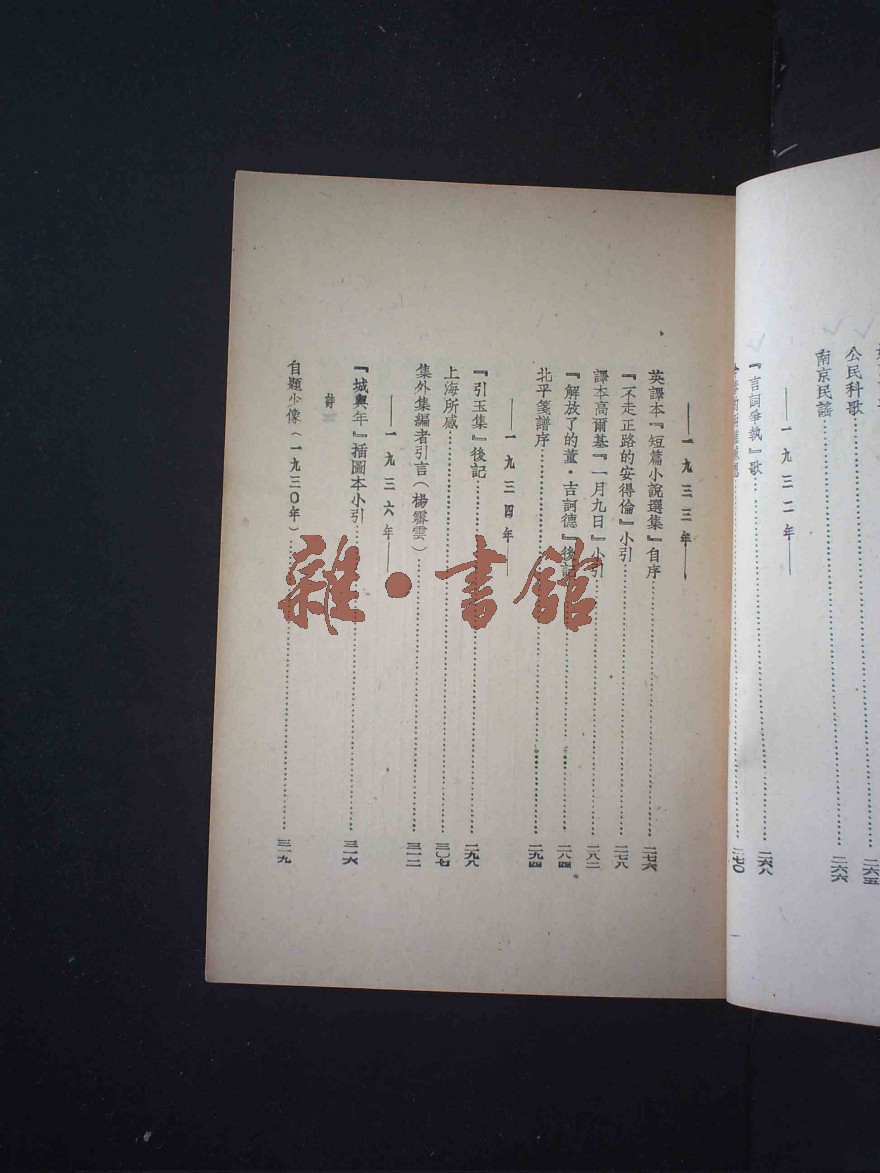 公民科歌……二六五
南京民謠……二六六
——一九三二年——
『言詞爭執』歌……二六八
二七〇
——一九三三年——
英譯本『短篇小說選集』自序……二七六
『不走正路的安得倫』小引……二七八
譯本高爾基『一月九日』小引……二八二
『解放了的董・吉訶德』後記……二八四
北平箋譜序……二九四
——一九三四年——
『引玉集』後記……二九八
上海所感……三〇七
集外集編者引言(楊霽雲)……三一二
——一九三六年——
『城與年』插圖本小引……三一六
詩
自題小像(一九三〇年)……三一九
雜・書館